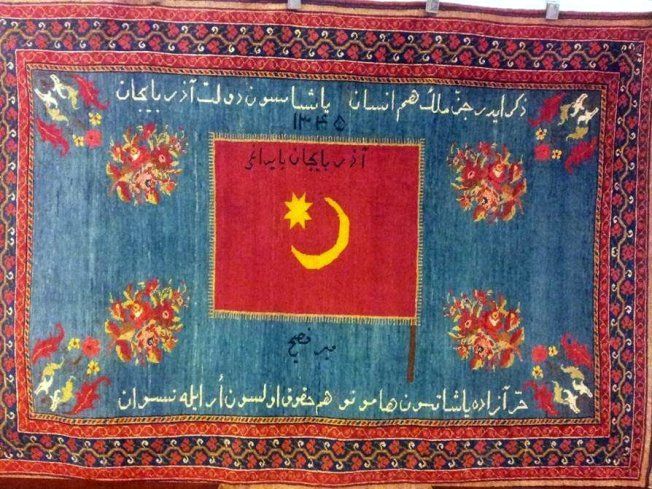 ذکر ایدر جن ملک هم انسان یاشاسون دولت آذربایجان
۱۳۴۵
آذربایجان بایراغی
میر فصیح
حر آزاده یاشاسون هامو تو هم حقوق اولسون ار ایله نسوان